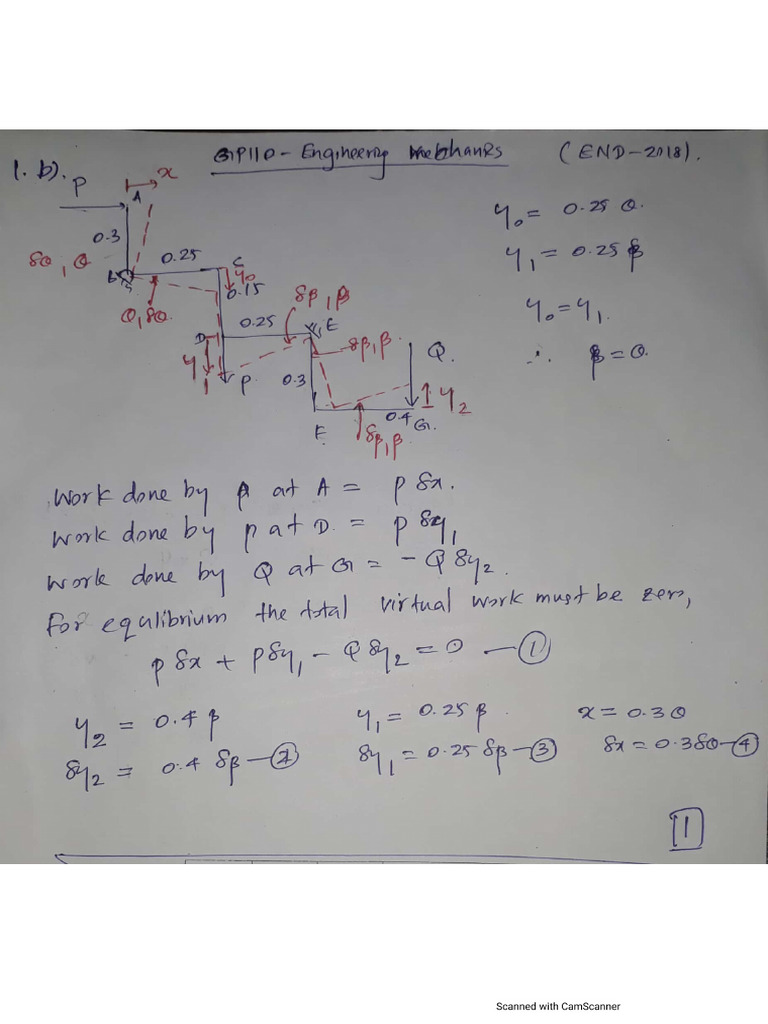 GP110 - Engineering Mechanics (END-2018).
1. b).
P
A
x
0.3
δθ, θ
B
0.25
C
y₀
0.15
θ, δθ
D
0.25
E
δβ, β
y₁
P
0.3
δβ, β
Q.
y₂
F
0.4
G
δβ, β
y₀ = 0.25 θ.
y₁ = 0.25 β
y₀ = y₁.
∴ β = θ.
Work done by P at A = P δx.
Work done by P at D. = P δy₁
Work done by Q at G = - Q δy₂.
For equlibrium the total virtual work must be zero,
P δx + P δy₁ - Q δy₂ = 0 — ①
y₂ = 0.4 β y₁ = 0.25 β. x = 0.3 θ
δy₂ = 0.4 δβ — ② δy₁ = 0.25 δβ — ③ δx = 0.3 δθ — ④
1
Scanned with CamScanner